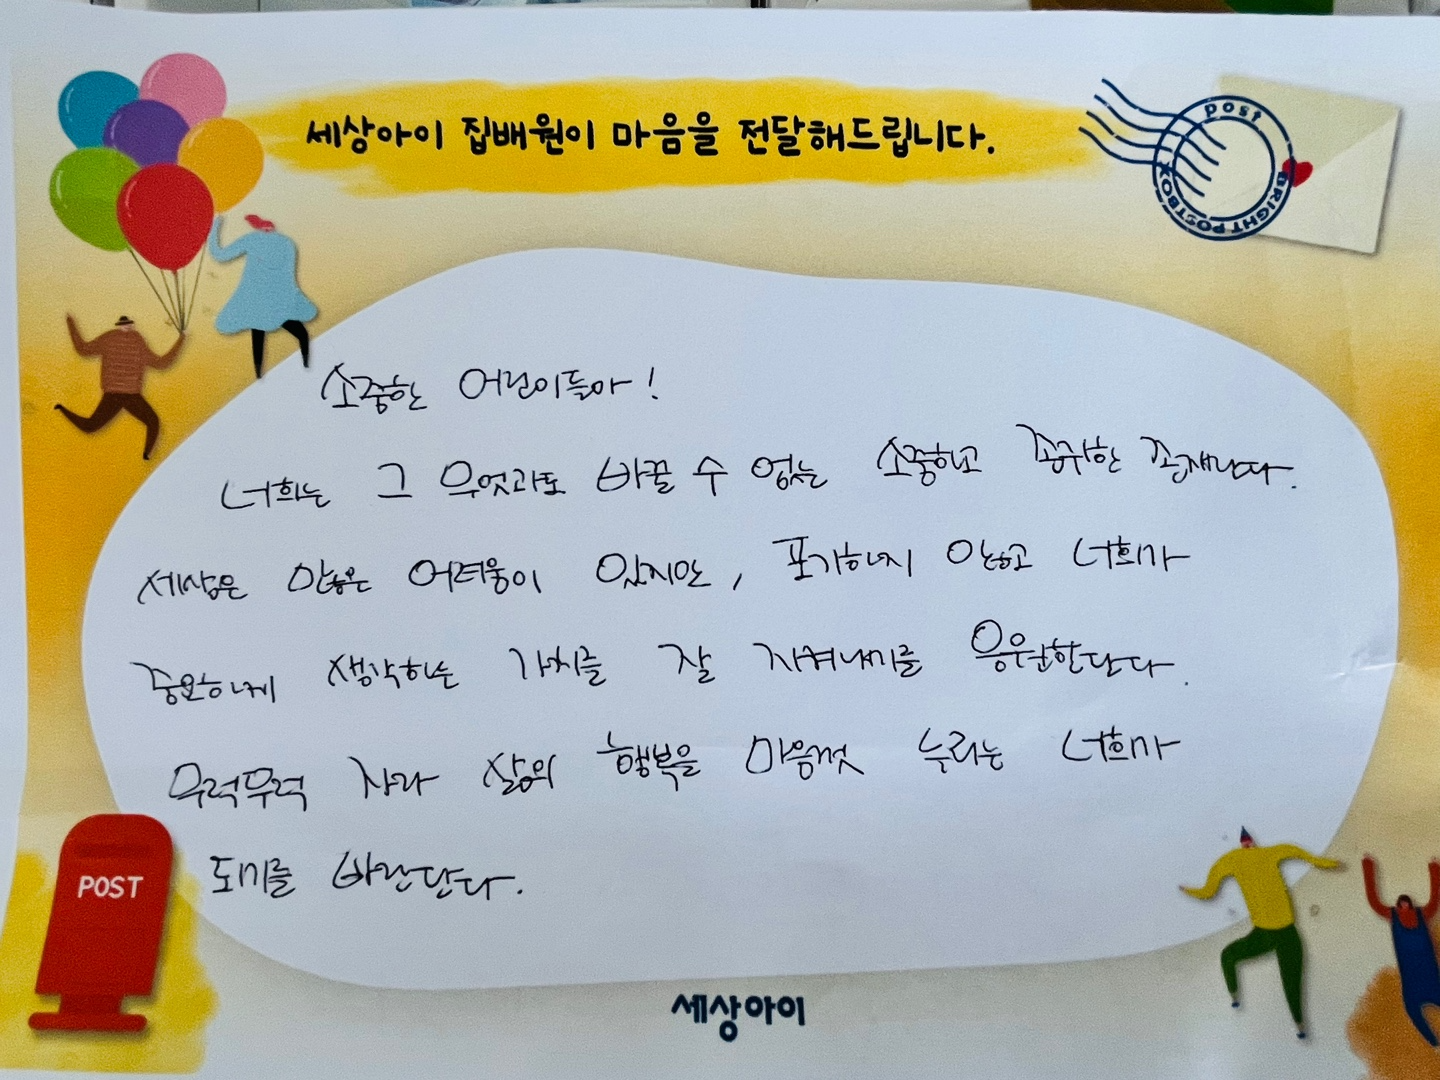 세상아이 집배원이 마음을 전달해드립니다.
post
BRIGHT POSTBOX
소중한 어린이들아!
너희는 그 무엇과도 바꿀 수 없는 소중하고 존귀한 존재니다.
세상은 많은 어려움이 있지만, 포기하지 안하고 너희가
중요하게 생각하는 가치를 잘 지켜내기를 응원한단다.
무럭무럭 자라 삶의 행복을 마음껏 누리는 너희가
되기를 바란단다.
POST
세상아이